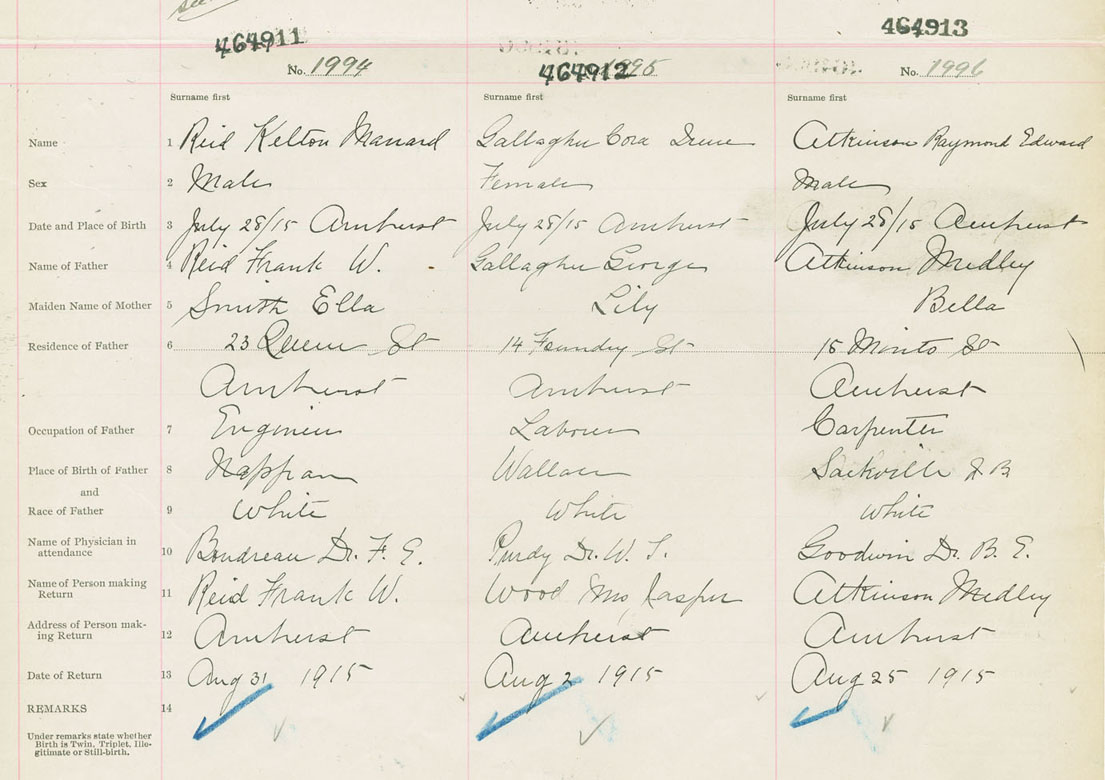 464911
464913
No. 1994
464912
No. 1996
Surname first
Surname first
Surname first
Name 1 Reid Kelton Manard Gallagher Cora Irene Atkinson Raymond Edward
Sex 2 Male Female Male
Date and Place of Birth 3 July 28/15 Amherst July 28/15 Amherst July 28/15 Amherst
Name of Father 4 Reid Frank W. Gallagher George Atkinson Medley
Maiden Name of Mother 5 Smith Ella Lily Bella
Residence of Father 6 23 Queen St 14 Foundry St 15 Minto St
Amherst Amherst Amherst
Occupation of Father 7 Engineer Labourer Carpenter
Place of Birth of Father 8 Nappan Wallace Sackville N B
and
Race of Father 9 White White White
Name of Physician in
attendance 10 Boudreau Dr. F. E. Purdy Dr. W. T. Goodwin Dr. B. E.
Name of Person making
Return 11 Reid Frank W. Wood Mrs Jasper Atkinson Medley
Address of Person mak-
ing Return 12 Amherst Amherst Amherst
Date of Return 13 Aug 31 1915 Aug 2 1915 Aug 25 1915
REMARKS 14
Under remarks state whether
Birth is Twin, Triplet, Ille-
gitimate or Still-birth.